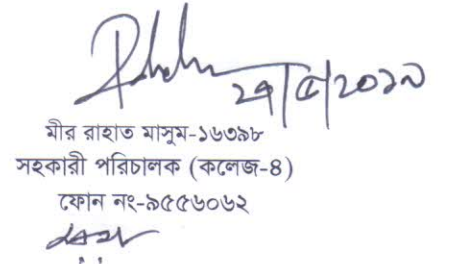 ২৭/৫/২০১৯
মীর রাহাত মাসুম-১৬৩৯৮
সহকারী পরিচালক (কলেজ-৪)
ফোন নং-৯৫৫৬০৬২